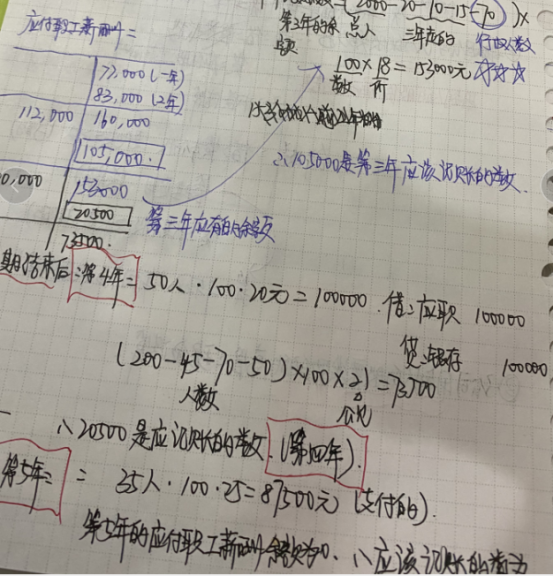 2000-20-10-15-70)×
应付职工薪酬=
第3年的余额 总人数 三年应的 行的人数
77000(一年)
100×18=153000元 ☆☆☆
数 价
83,000(2年)
112,000 160,000
105,000.
∴105000是第三年应该记账的数.
0,000 153000
20500 第三年应有的余额
73500.
期结束后:第4年= 50人·100·20元=100000.借:应职 100000
贷:银存 100000
(200-45-70-50)×100×21=73500
人数 公允
∴20500是应记账的数.(第四年).
第5年: = 35人·100·25=87500元(支付的).
第5年的应付职工薪酬余额为0.∴应该记账的数为